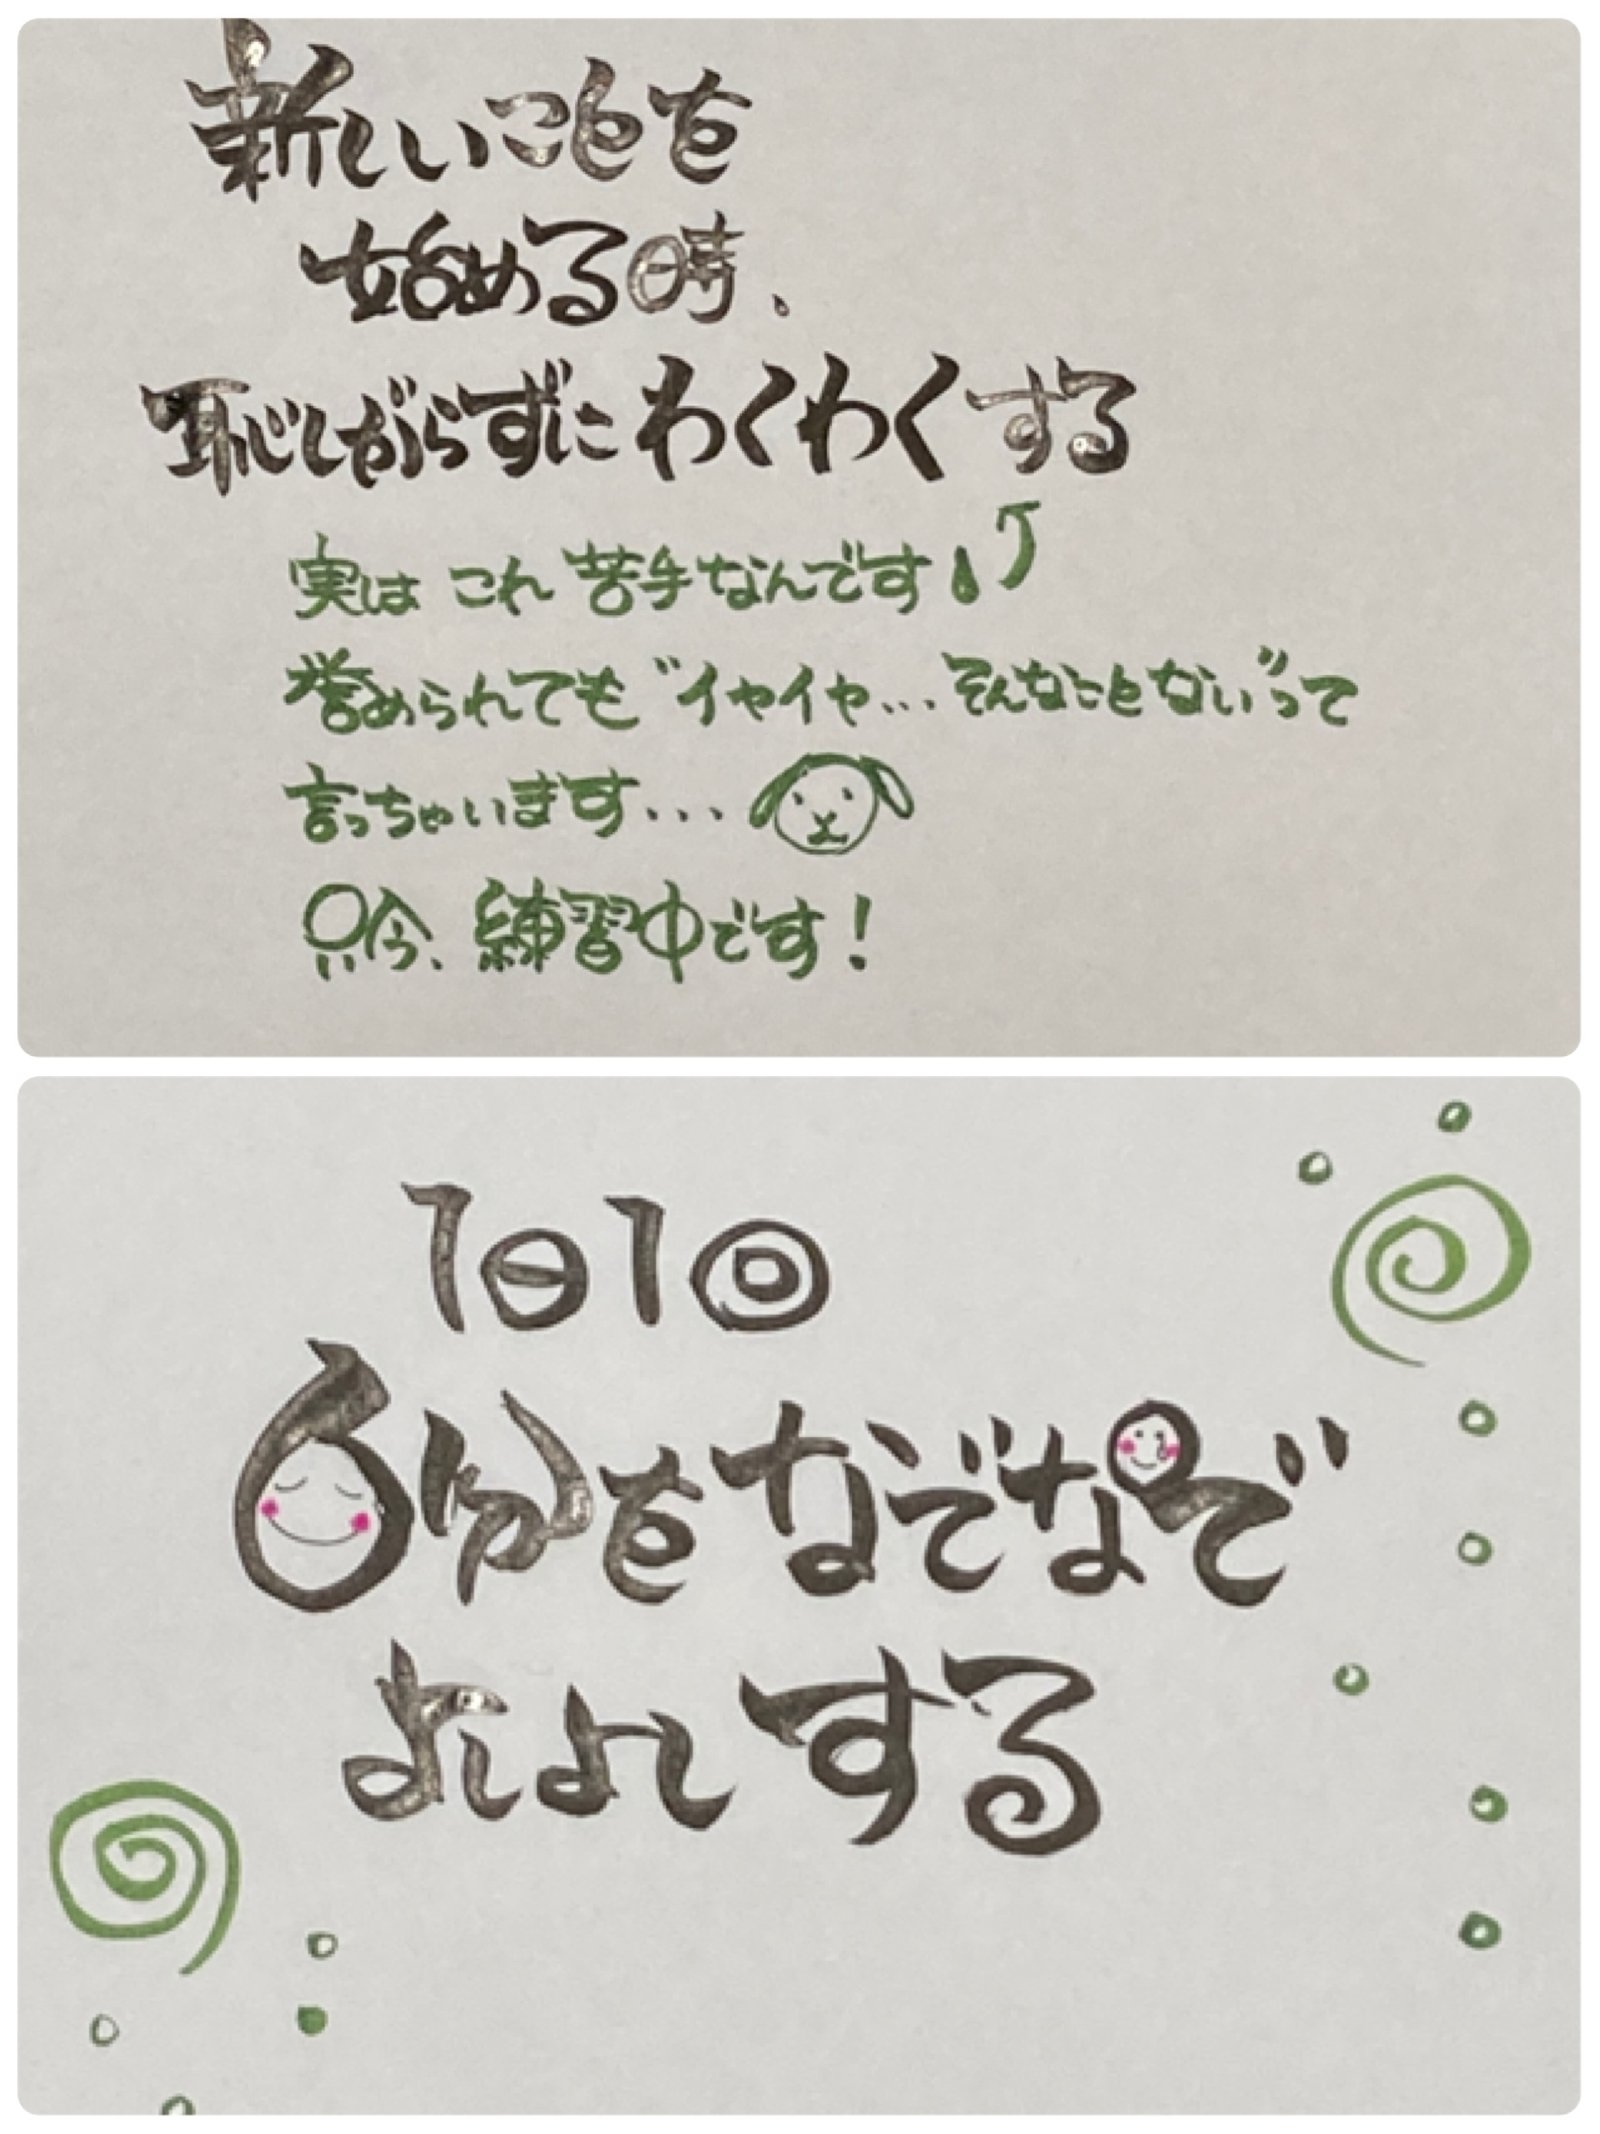 新しいことを
始める時、
恥しがらずにわくわくする
実は これ 苦手なんです!
誉められても"イヤイヤ...そんなことない"って
言っちゃいます...
只今、練習中です!
1日1回
自分をなでなで
よしよしする